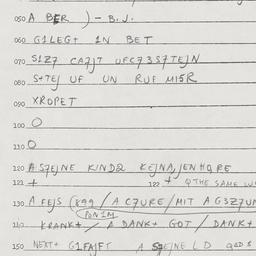 050 A BER ) - B.J.
060 G1LEGT 1N BET
070 S1Z7 CA7JT UFC73S7TEJN
080 S+TEJ UF UN RUF MI5R
090 XROPET
100 O
110 O
120 A S7EJNE KIND2 KEJNA,JENHQRE
121 + 122 + Q THE SAME
130 A FEJS (K99 / A C7URE / MIT A G3Z7UN
PON1M
140 KRANK+ / A DANK+ GOT / DANK+
150 NEXT+ G1FAJFT A S7EJNE L D